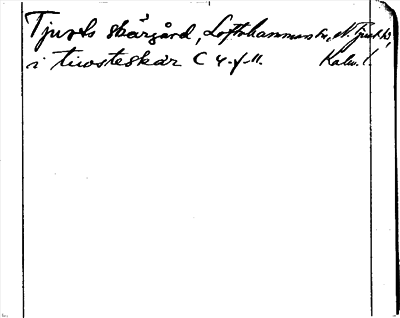 Tjusts skärgård, Loftahammars sn, N. Tjust hd,
i tiusteskär C 4 f. 11. Kalm. l.